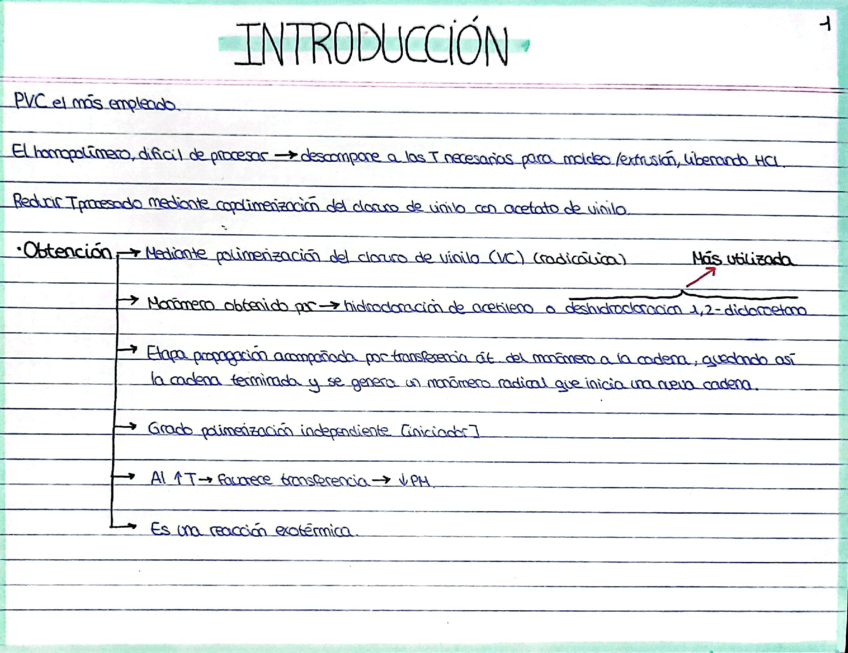 1
INTRODUCCIÓN
PVC el más empleado.
El homopolímero, difícil de procesar → descompone a las T necesarias para moldeo/extrusión, liberando HCl.
Reducir Tprocesado mediante copolimerización del cloruro de vinilo con acetato de vinilo.
·Obtención → Mediante polimerización del cloruro de vinilo (VC) (radicálica)
Más utilizada
→ Monómero obtenido por → hidrocloración de acetileno o deshidrocloración 1,2-dicloroetano
→ Etapa propagación acompañada por transferencia át. del monómero a la cadena, quedando así
la cadena terminada y se genera un monómero radical que inicia una nueva cadena.
→ Grado polimerización independiente [iniciador]
→ Al ↑T → Favorece transferencia → ↓PM.
→ Es una reacción exotérmica.